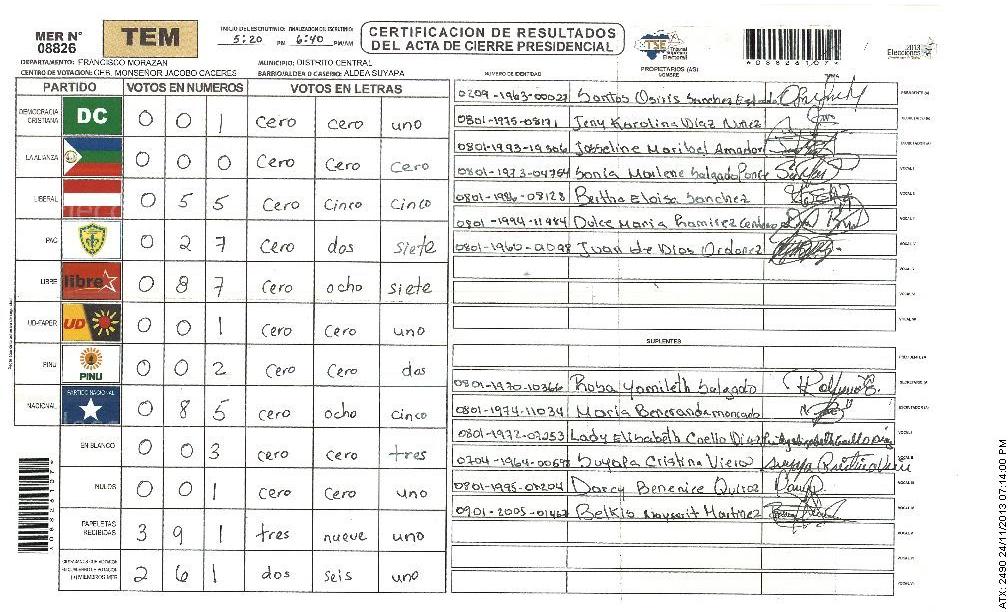 MER N° 08826
TEM
INICIO DEL ESCRUTINIO: 5:20 PM FINALIZACION DEL ESCRUTINIO: 6:40 PM/AM
CERTIFICACION DE RESULTADOS
DEL ACTA DE CIERRE PRESIDENCIAL
TSE Tribunal Supremo Electoral
2013 Elecciones
DEPARTAMENTO: FRANCISCO MORAZAN MUNICIPIO: DISTRITO CENTRAL
CENTRO DE VOTACION: CEB. MONSEÑOR JACOBO CACERES BARRIO/ALDEA O CASERIO: ALDEA SUYAPA
NUMERO DE IDENTIDAD PROPIETARIOS (AS) NOMBRE
PARTIDO VOTOS EN NUMEROS VOTOS EN LETRAS
DEMOCRACIA CRISTIANA DC 0 0 1 cero cero uno
LA ALIANZA 0 0 0 Cero Cero Cero
LIBERAL 0 5 5 Cero Cinco Cinco
PAC 0 2 7 Cero dos siete
LIBRE libre 0 8 7 Cero ocho siete
UD-FAPER UD 0 0 1 Cero Cero uno
PINU PINU 0 0 2 Cero Cero dos
NACIONAL PARTIDO NACIONAL 0 8 5 cero ocho cinco
EN BLANCO 0 0 3 cero Cero tres
NULOS 0 0 1 Cero Cero uno
PAPELETAS RECIBIDAS 3 9 1 tres nueve uno
2 6 1 dos seis uno
0209-1963-00027 Santos Osiris Sanchez
0801-1975-08171 Jeny Karolina Díaz Nuñez
0801-1993-19306 Josseline Maribel Amador
0801-1973-04754 Sonia Marlene Salgado Ponce
0801-1986-08128 Bertha Eloisa Sanchez
0801-1994-11984 Dulce Maria Ramirez
0801-1960- Juan de Dios Ordonez
SUPLENTES
0801-1970-10366 Rosa Yamileth Salgado
0801-1974-11034 Maria
0801-1972-07253 Lady Elisabeth Coello Diaz
0704-1964-00598 Suyapa Cristina
0801-1995-08204 Darcy Benenice Quiroz
0901-2005-01467 Belkis Martinez
ATX: 2490 24/11/2013 07:14:00 PM